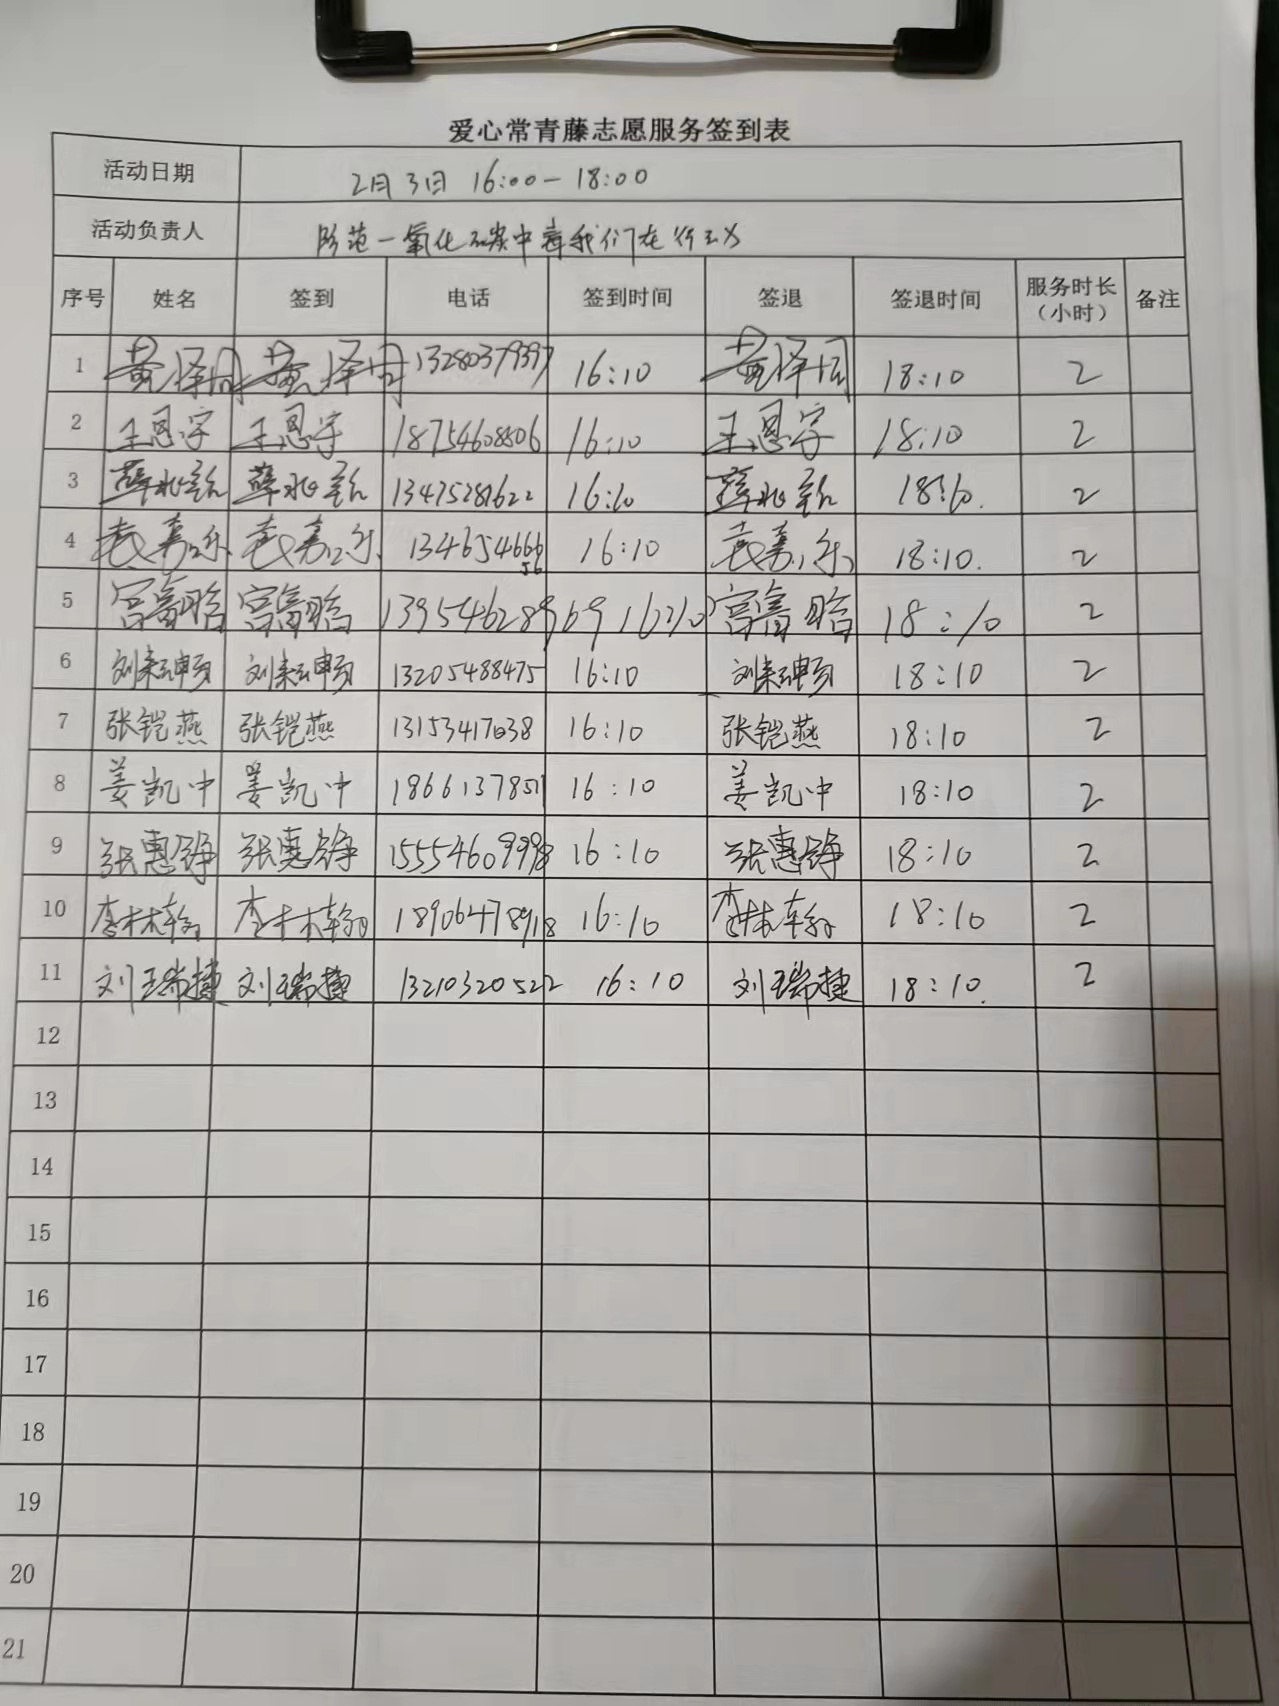 爱心常青藤志愿服务签到表
活动日期 2月3日 16:00—18:00
活动负责人 防范一氧化碳中毒我们在行动
序号 姓名 签到 电话 签到时间 签退 签退时间 服务时长（小时） 备注
1 黄泽同 黄泽同 13280379397 16:10 黄泽同 18:10 2
2 王恩宇 王恩宇 18754608806 16:10 王恩宇 18:10 2
3 16:10 18:10. 2
4 袁嘉乐 袁嘉乐 16:10 袁嘉乐 18:10. 2
5 宫富晗 宫富晗 13954628969 16:10 宫富晗 18:10 2
6 13205488475 16:10 18:10 2
7 张铠燕 张铠燕 13153417038 16:10 张铠燕 18:10 2
8 姜凯中 姜凯中 1866137851 16:10 姜凯中 18:10 2
9 张惠铮 张惠铮 15554609998 16:10 张惠铮 18:10 2
10 李林翰 李林翰 18906478918 16:10 李林翰 18:10 2
11 刘瑞捷 刘瑞捷 13210320522 16:10 刘瑞捷 18:10. 2
12
13
14
15
16
17
18
19
20
21